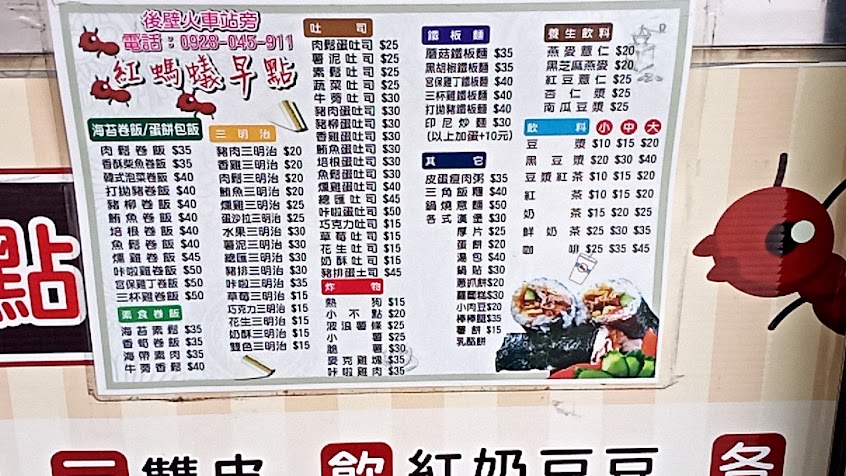 後壁火車站旁
電話：0928-045-911
紅螞蟻早點
海苔卷飯/蛋餅包飯
肉鬆卷飯 $35
香酥柴魚卷飯 $35
韓式泡菜卷飯 $40
打拋豬卷飯 $40
豬柳卷飯 $40
鮪魚卷飯 $40
培根卷飯 $40
魚鬆卷飯 $40
燻雞卷飯 $45
咔啦雞卷飯 $50
宮保雞丁卷飯 $50
三杯雞卷飯 $50
素食卷飯
海苔素鬆 $35
香筍卷飯 $35
海帶素肉 $35
牛蒡香鬆 $40
三明治
豬肉三明治 $20
香雞三明治 $20
肉鬆三明治 $20
鮪魚三明治 $20
燻雞三明治 $25
蛋沙拉三明治 $25
水果三明治 $30
薯泥三明治 $30
總匯三明治 $30
豬排三明治 $30
咔啦三明治 $35
草莓三明治 $15
巧克力三明治 $15
花生三明治 $15
奶酥三明治 $15
雙色三明治 $15
吐司
肉鬆蛋吐司 $25
薯泥吐司 $25
素鬆吐司 $25
蔬菜吐司 $25
牛蒡吐司 $30
豬肉蛋吐司 $30
豬柳蛋吐司 $30
香雞蛋吐司 $30
鮪魚蛋吐司 $30
培根蛋吐司 $30
薯泥蛋吐司 $30
燻雞蛋吐司 $40
總匯吐司 $45
咔啦蛋吐司 $50
巧克力吐司 $15
草莓吐司 $15
花生吐司 $15
奶酥吐司 $15
豬排蛋土司 $45
炸物
熱狗 $15
小不點 $20
波浪薯條 $25
小薯 $25
脆薯 $30
麥克雞塊 $35
咔啦雞肉 $35
鐵板麵
蘑菇鐵板麵 $35
黑胡椒鐵板麵 $35
宮保雞丁鐵板麵 $40
三杯雞鐵板麵 $40
打拋豬鐵板麵 $40
印尼炒麵 $30
(以上加蛋+10元)
其它
皮蛋瘦肉粥 $35
三角飯糰 $40
鍋燒意麵 $50
各式漢堡 $30
厚片 $25
蛋餅 $20
湯包 $40
鍋貼 $30
蔥抓餅 $20
蘿蔔糕 $30
小肉豆 $20
棒棒腿 $35
薯餅 $15
乳酪餅
養生飲料
燕麥薏仁 $20
黑芝麻燕麥 $20
紅豆薏仁 $25
杏仁漿 $25
南瓜豆漿 $25
飲料 小 中 大
豆漿 $10 $15 $20
黑豆漿 $20 $30 $40
豆漿紅茶 $10 $15 $20
紅茶 $10 $15 $20
奶茶 $15 $20 $25
鮮奶茶 $25 $30 $35
咖啡 $25 $35 $45
點
飲 紅奶豆豆